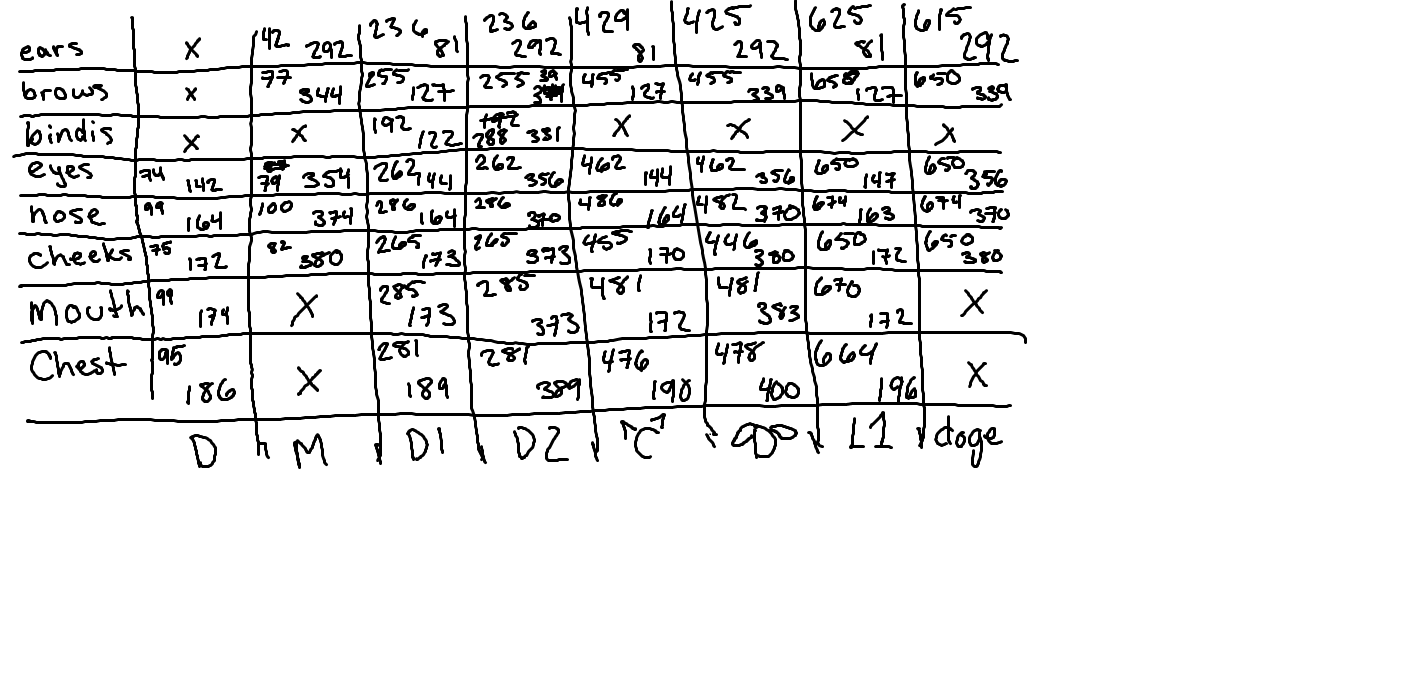 ears x 42 292 236 81 236 292 429 81 425 292 625 81 615 292
brows x 77 344 255 127 255 39 455 127 455 339 658 127 650 339
bindis x x 192 122 288 331 x x x x
eyes 74 142 79 354 262 144 262 356 462 144 462 356 650 147 650 356
nose 99 164 100 374 286 164 286 370 486 164 482 370 674 163 674 370
cheeks 75 172 82 380 265 173 265 373 455 170 446 380 650 172 650 380
Mouth 99 174 X 285 173 285 373 481 172 481 383 670 172 X
Chest 95 186 X 281 189 281 389 476 190 478 400 664 196 X
D M D1 D2 "C" D L1 doge